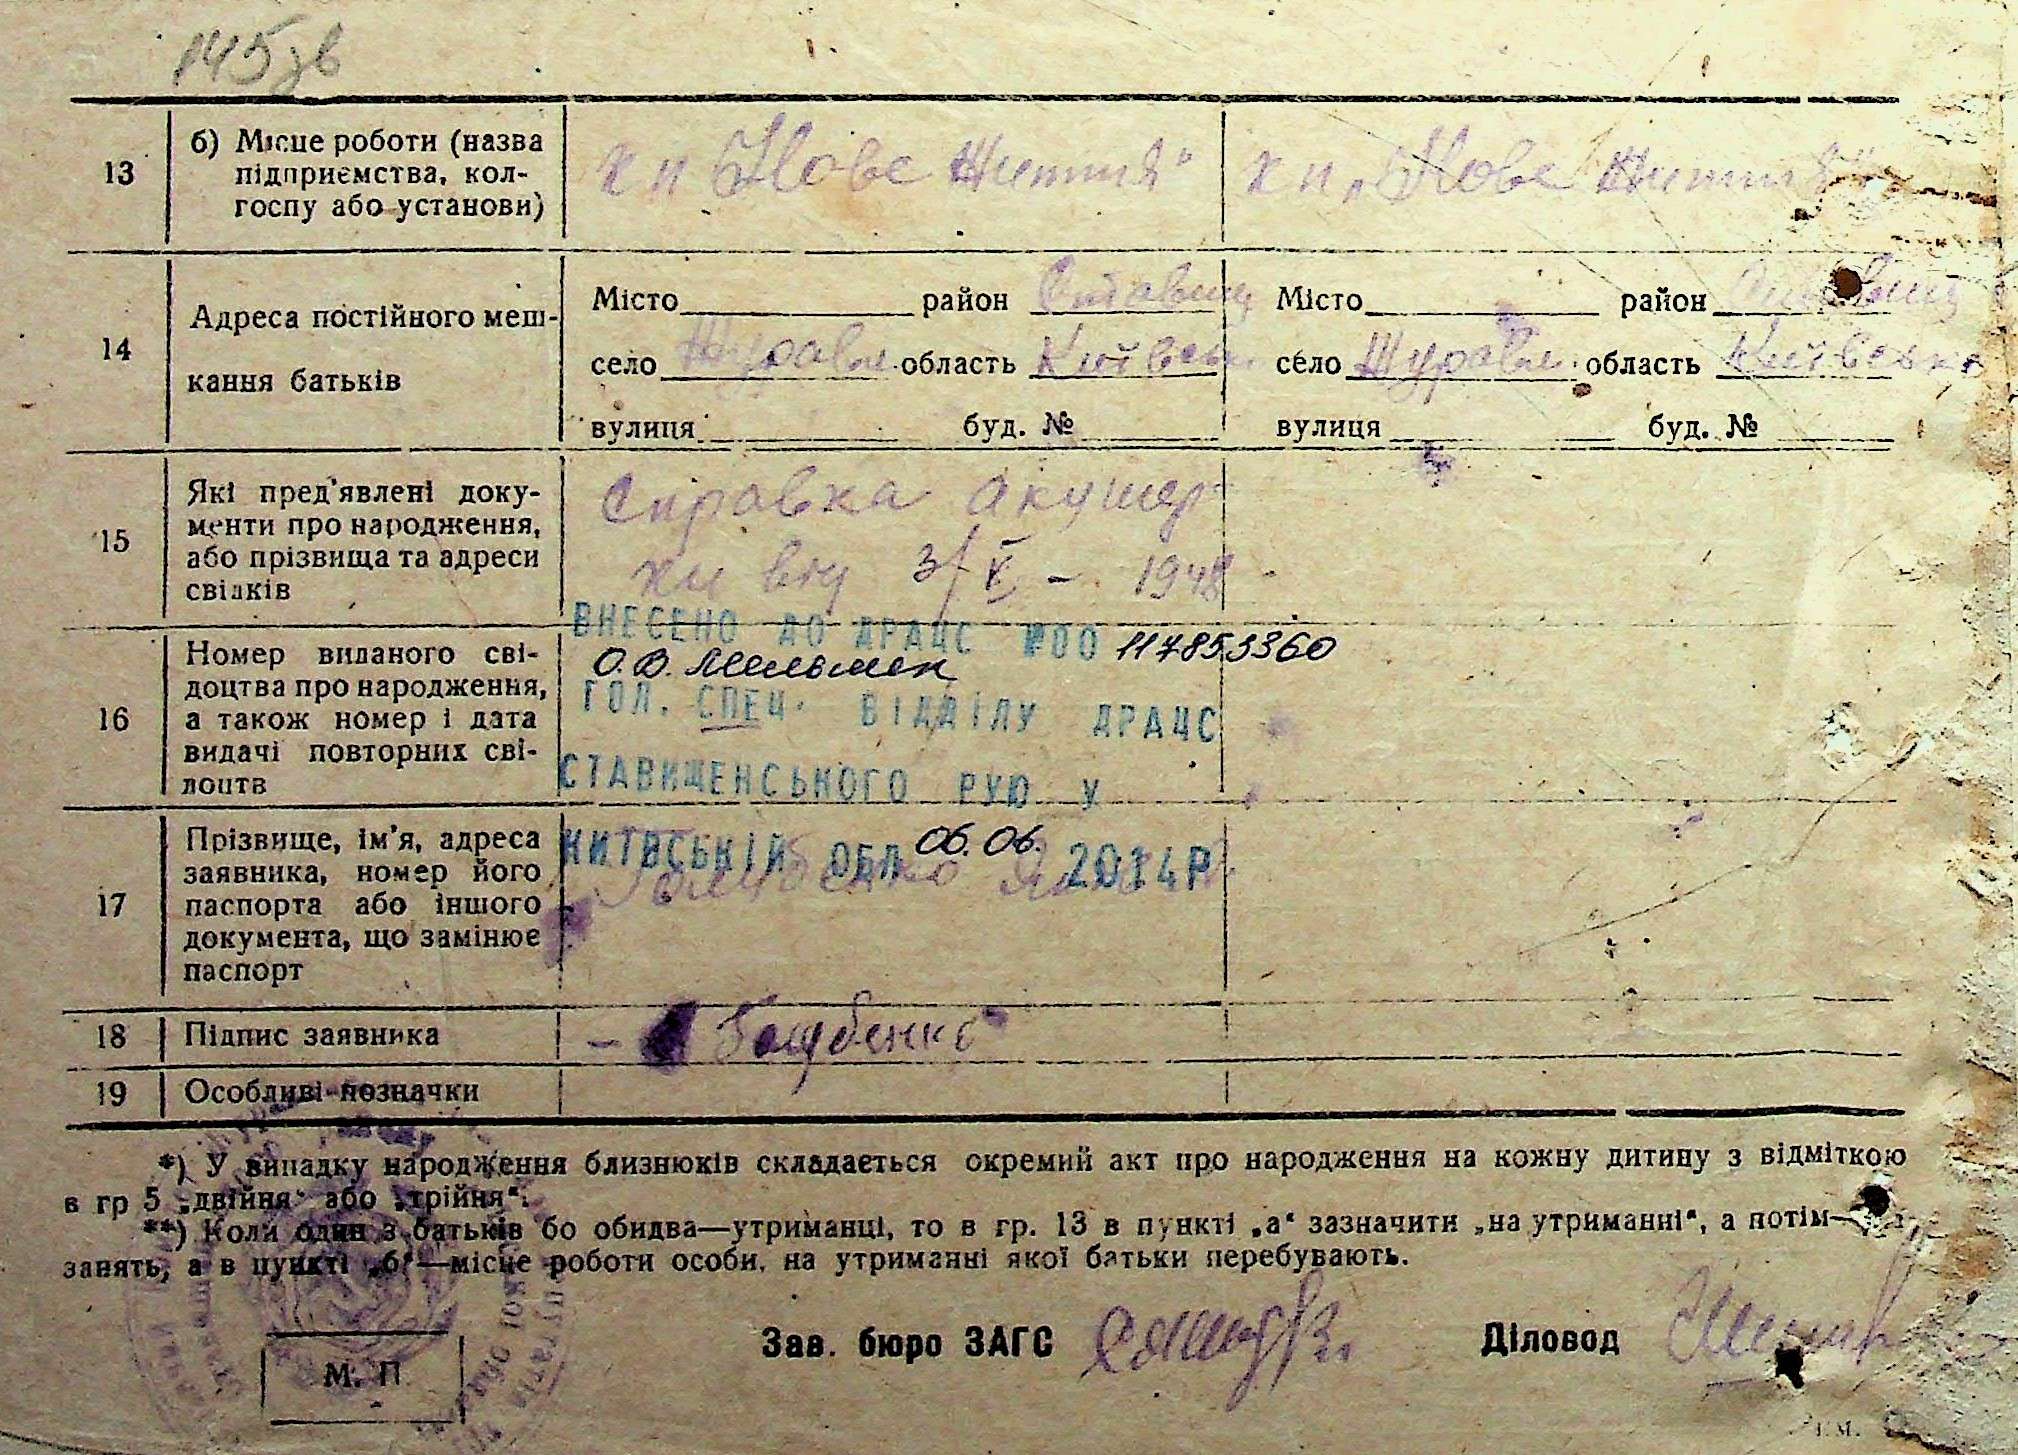 145зв
13
б) Місце роботи (назва
підприємства, кол-
госпу або установи)
к п "Нове Життя"
к п "Нове Життя"
14
Адреса постійного меш-
кання батьків
Місто район Ставищ
село Журавл. область Київськ.
вулиця буд. №
Місто район Ставищ
село Журавл. область Київська
вулиця буд. №
15
Які пред'явлені доку-
менти про народження,
або прізвища та адреси
свідків
Справка акушер
ки від 3/X - 1948
16
Номер виданого сві-
доцтва про народження,
а також номер і дата
видачі повторних сві-
доцтв
ВНЕСЕНО ДО ДРАЦС №00 117853360
О.В. Мельник
ГОЛ. СПЕЦ. ВІДДІЛУ ДРАЦС
СТАВИЩЕНСЬКОГО РУЮ У
КИЇВСЬКІЙ ОБЛ 06.06. 2014Р
17
Прізвище, ім'я, адреса
заявника, номер його
паспорта або іншого
документа, що замінює
паспорт
Голубенко
18
Підпис заявника
- Голубенко
19
Особливі позначки
*) У випадку народження близнюків складається окремий акт про народження на кожну дитину з відміткою
в гр 5 „двійня" або „трійня".
**) Коли один з батьків бо обидва—утриманці, то в гр. 13 в пункті „а" зазначити „на утриманні", а потім—
занять, а в пункті „б"—місце роботи особи, на утриманні якої батьки перебувають.
М. П
Зав. бюро ЗАГС
Діловод